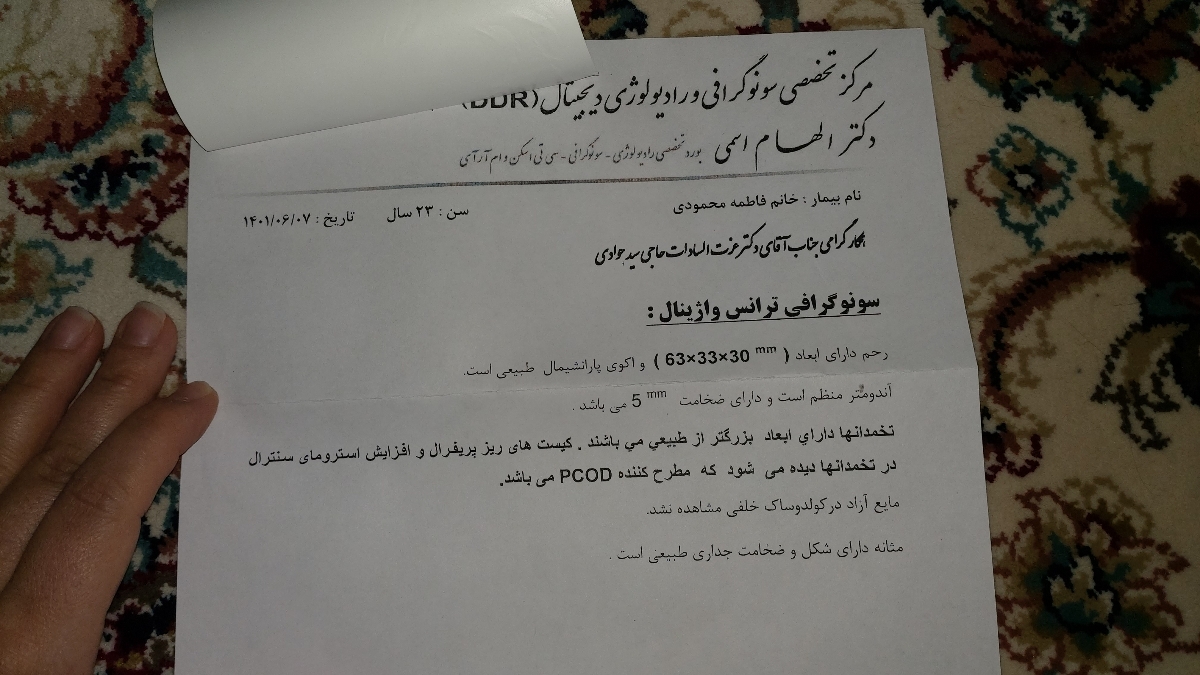 مرکز تخصصی سونوگرافی و رادیولوژی دیجیتال (DDR)
دکتر الهام اسمی بورد تخصصی رادیولوژی - سونوگرافی - سی تی اسکن و ام آر آی
نام بیمار : خانم فاطمه محمودی سن : ۲۳ سال تاریخ : ۱۴۰۱/۰۶/۰۷
همکار گرامی جناب آقای دکتر عزت السادات حاجی سید جوادی
سونوگرافی ترانس واژینال :
رحم دارای ابعاد ( 63×33×30 mm ) و اکوی پارانشیمال طبیعی است.
آندومتر منظم است و دارای ضخامت 5 mm می باشد .
تخمدانها داراي ابعاد بزرگتر از طبيعي مي باشند . کیست های ریز پریفرال و افزایش استرومای سنترال
در تخمدانها دیده می شود که مطرح کننده PCOD می باشد.
مایع آزاد در کولدوساک خلفی مشاهده نشد.
مثانه دارای شکل و ضخامت جداری طبیعی است .